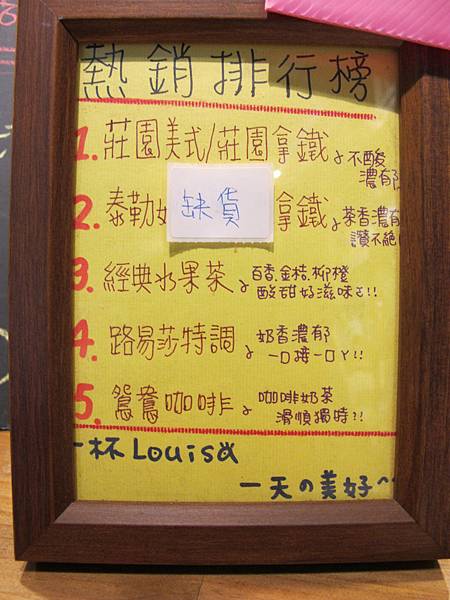 熱銷排行榜
1. 莊園美式/莊園拿鐵 不酸
濃郁
2. 泰勒 缺貨 拿鐵 茶香濃有
讚不絕
3. 經典水果茶 百香.金桔.柳橙
酸甜好滋味!!
4. 路易莎特調 奶香濃郁
一口接一口ㄚ!!
5. 鴛鴦咖啡 咖啡奶茶
滑順獨特?!
一杯Louisa
一天の美好~